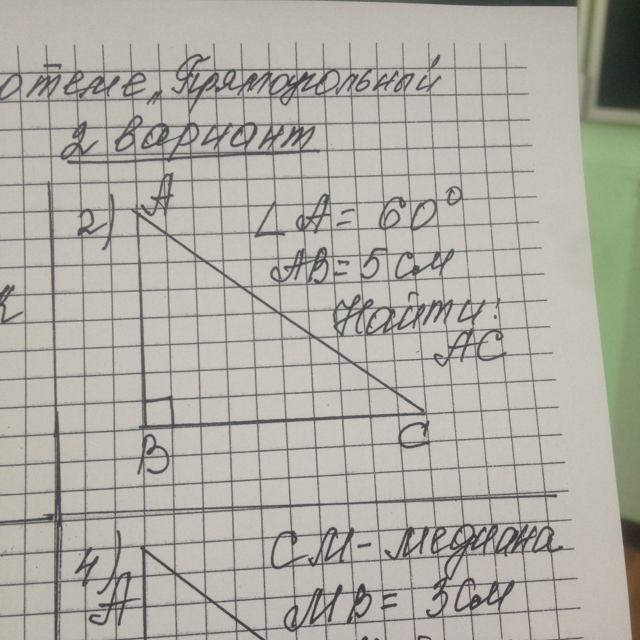 о теме „Прямоугольный
2 вариант
2) A
∠A = 60°
AB = 5 см
Найти:
AC
B
C
4)
A
CM - медиана
MB = 3 см